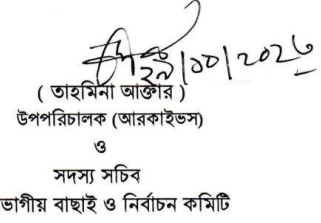 ২৯/১০/২০২৩
( তাহমিনা আক্তার )
উপপরিচালক (আরকাইভস)
ও
সদস্য সচিব
ভাগীয় বাছাই ও নির্বাচন কমিটি